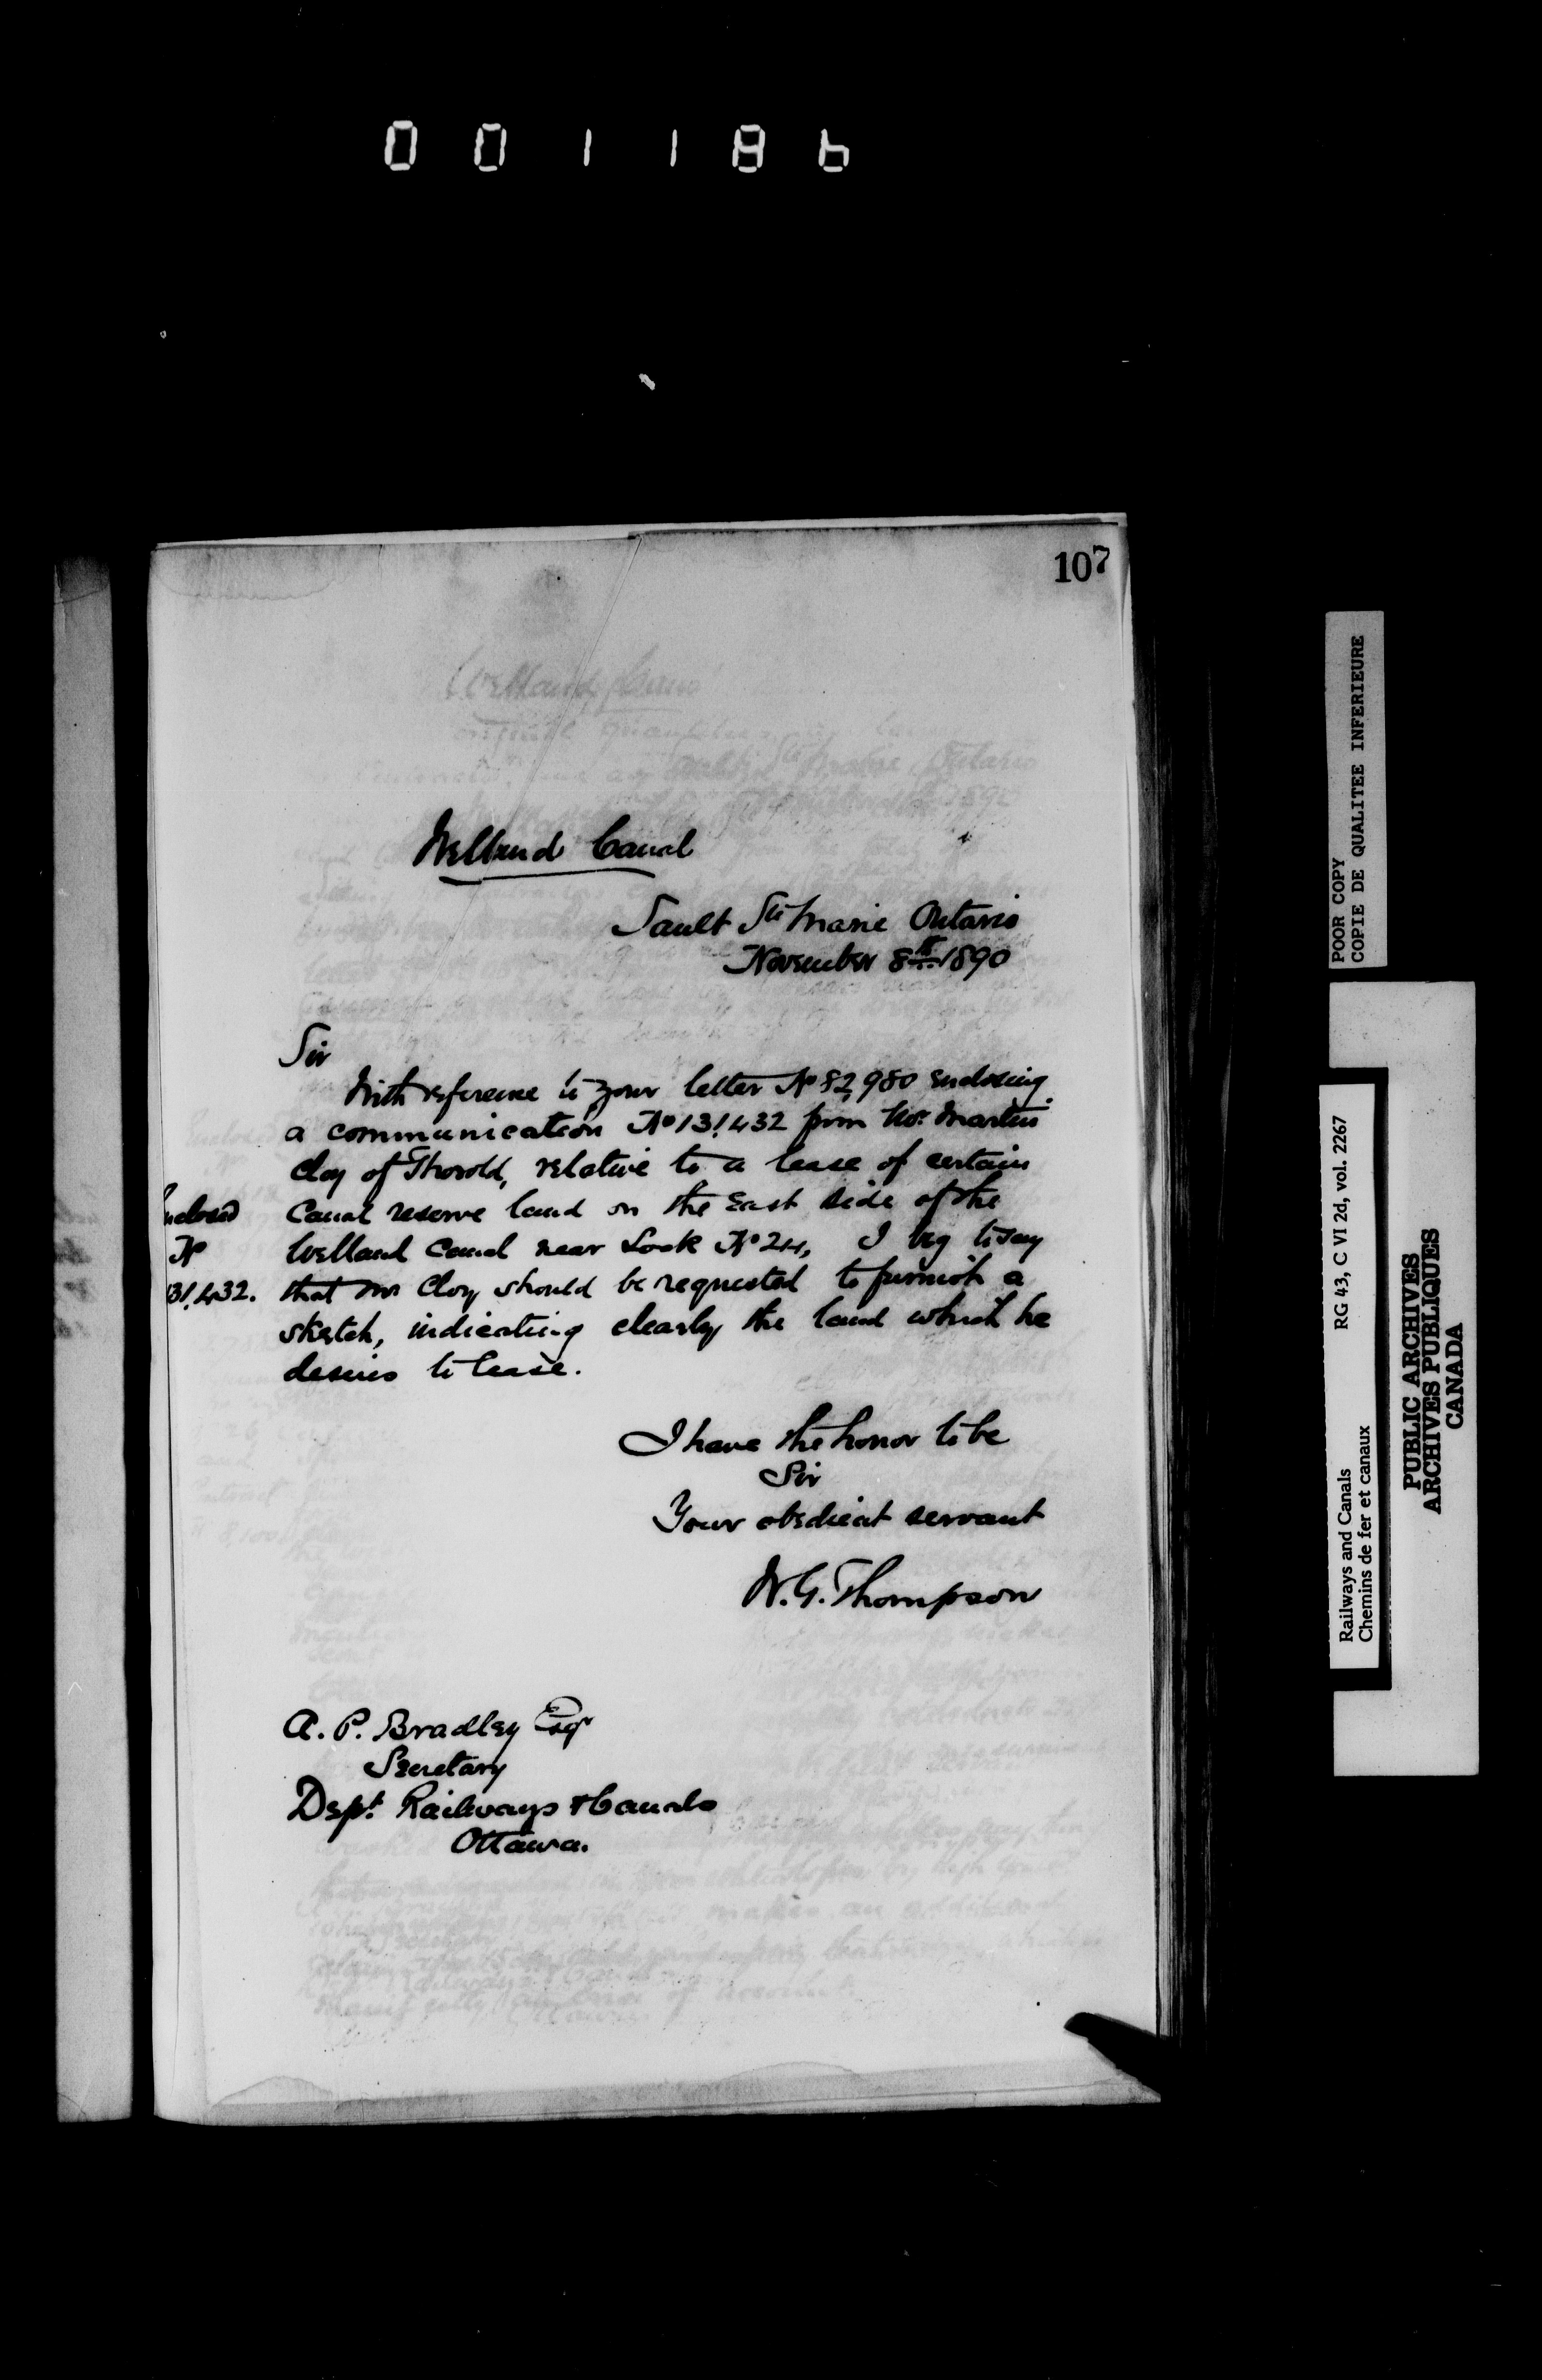 001186
107
Welland Canal
Sault Ste Marie Ontario
November 8th 1890
Sir
With reference to your letter No 82,980 enclosing
a communication No 131,432 from Mr. Martin
Cloy of Thorold, relative to a lease of certain
Canal reserve land on the East side of the
Welland Canal near Lock No 24, I beg to say
that Mr Cloy should be requested to furnish a
sketch, indicating clearly the land which he
desires to lease.
nclosed
No
131,432.
I have the honor to be
Sir
Your obedient servant
W. G. Thompson
A. P. Bradley Esqr
Secretary
Dept Railways & Canals
Ottawa.
POOR COPY
COPIE DE QUALITEE INFERIEURE
RG 43, C VI 2d, vol. 2267
Railways and Canals
Chemins de fer et canaux
PUBLIC ARCHIVES
ARCHIVES PUBLIQUES
CANADA